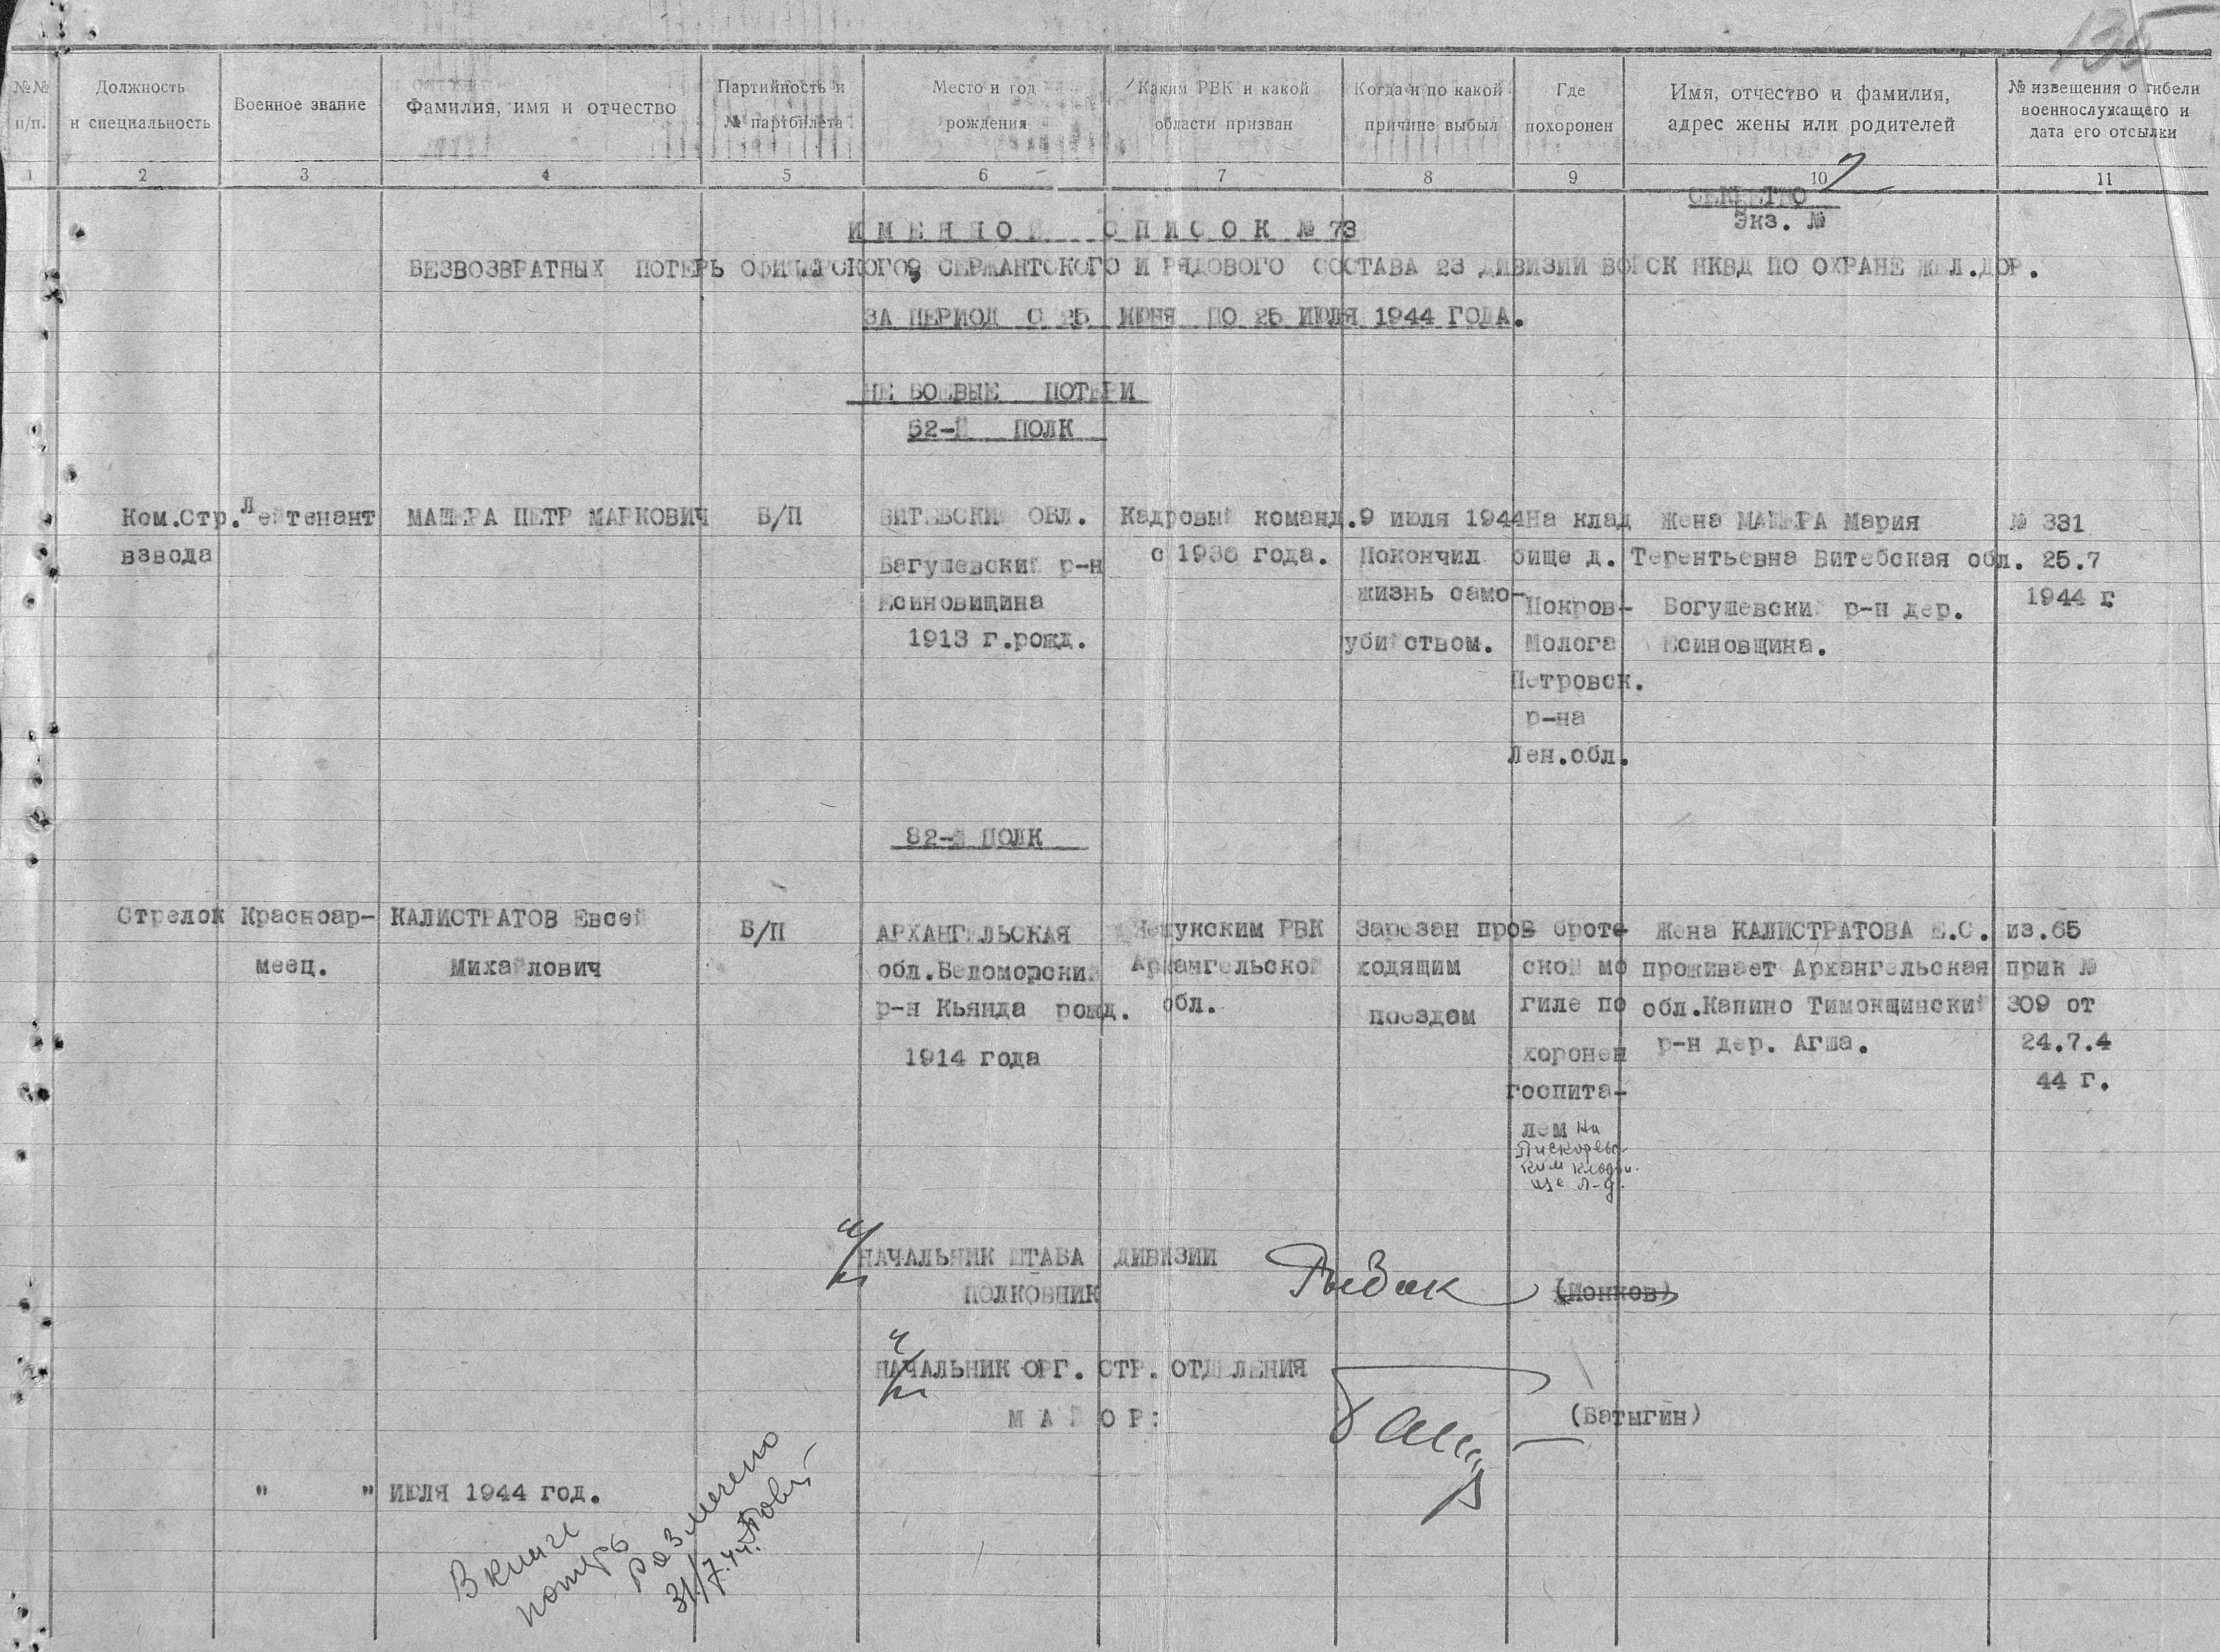 135
№№ п/п.
Должность и специальность
Военное звание
Фамилия, имя и отчество
Партийность и № партбилета
Место и год рождения
Каким РВК и какой области призван
Когда и по какой причине выбыл
Где похоронен
Имя, отчество и фамилия, адрес жены или родителей
№ извещения о гибели военнослужащего и дата его отсылки
1 2 3 4 5 6 7 8 9 10 11
СЕКРЕТНО
Экз. №
ИМЕННОЙ СПИСОК № 73
БЕЗВОЗВРАТНЫХ ПОТЕРЬ ОФИЦЕРСКОГО, СЕРЖАНТСКОГО И РЯДОВОГО СОСТАВА 23 ДИВИЗИИ ВОЙСК НКВД ПО ОХРАНЕ ЖЕЛ.ДОР.
ЗА ПЕРИОД С 25 ИЮНЯ ПО 25 ИЮЛЯ 1944 ГОДА.
НЕ БОЕВЫЕ ПОТЕРИ
52-Й ПОЛК
Ком.Стр.
взвода
Лейтенант
МАШЕРА ПЕТР МАРКОВИЧ
Б/П
ВИТЕБСКИЙ ОБЛ.
Багушевский р-н
Есиновищина
1913 г.рожд.
Кадровый команд.
с 1936 года.
9 июля 1944
Покончил
жизнь само-
убийством.
На клад
бище д.
Покров-
Молога
Петровск.
р-на
Лен.обл.
Жена МАШЕРА Мария
Терентьевна Витебская обл.
Богушевский р-н дер.
Есиновщина.
№ 331
25.7
1944 г.
82-Й ПОЛК
Стрелок
Красноар-
меец.
КАЛИСТРАТОВ Евсей
Михайлович
Б/П
АРХАНГЕЛЬСКАЯ
обл.Беломорский
р-н Кьянда рожд.
1914 года
РВК
Архангельской
обл.
Зарезан про
ходящим
поездом
В брате
ской мо
гиле по
хоронен
госпита-
лем На
Пискоревс
ком кладби-
ще Л-д.
Жена КАЛИСТРАТОВА Е.С.
проживает Архангельская
обл.Капино Тимокщинский
р-н дер. Агша.
из.65
прик №
309 от
24.7.4
44 г.
НАЧАЛЬНИК ШТАБА ДИВИЗИИ
ПОЛКОВНИК
Рыбак
(Ионков)
НАЧАЛЬНИК ОРГ. СТР. ОТДЕЛЕНИЯ
МАЙОР:
(Батыгин)
" " ИЮЛЯ 1944 год.
В книге
потерь
размечено
31/7.44.